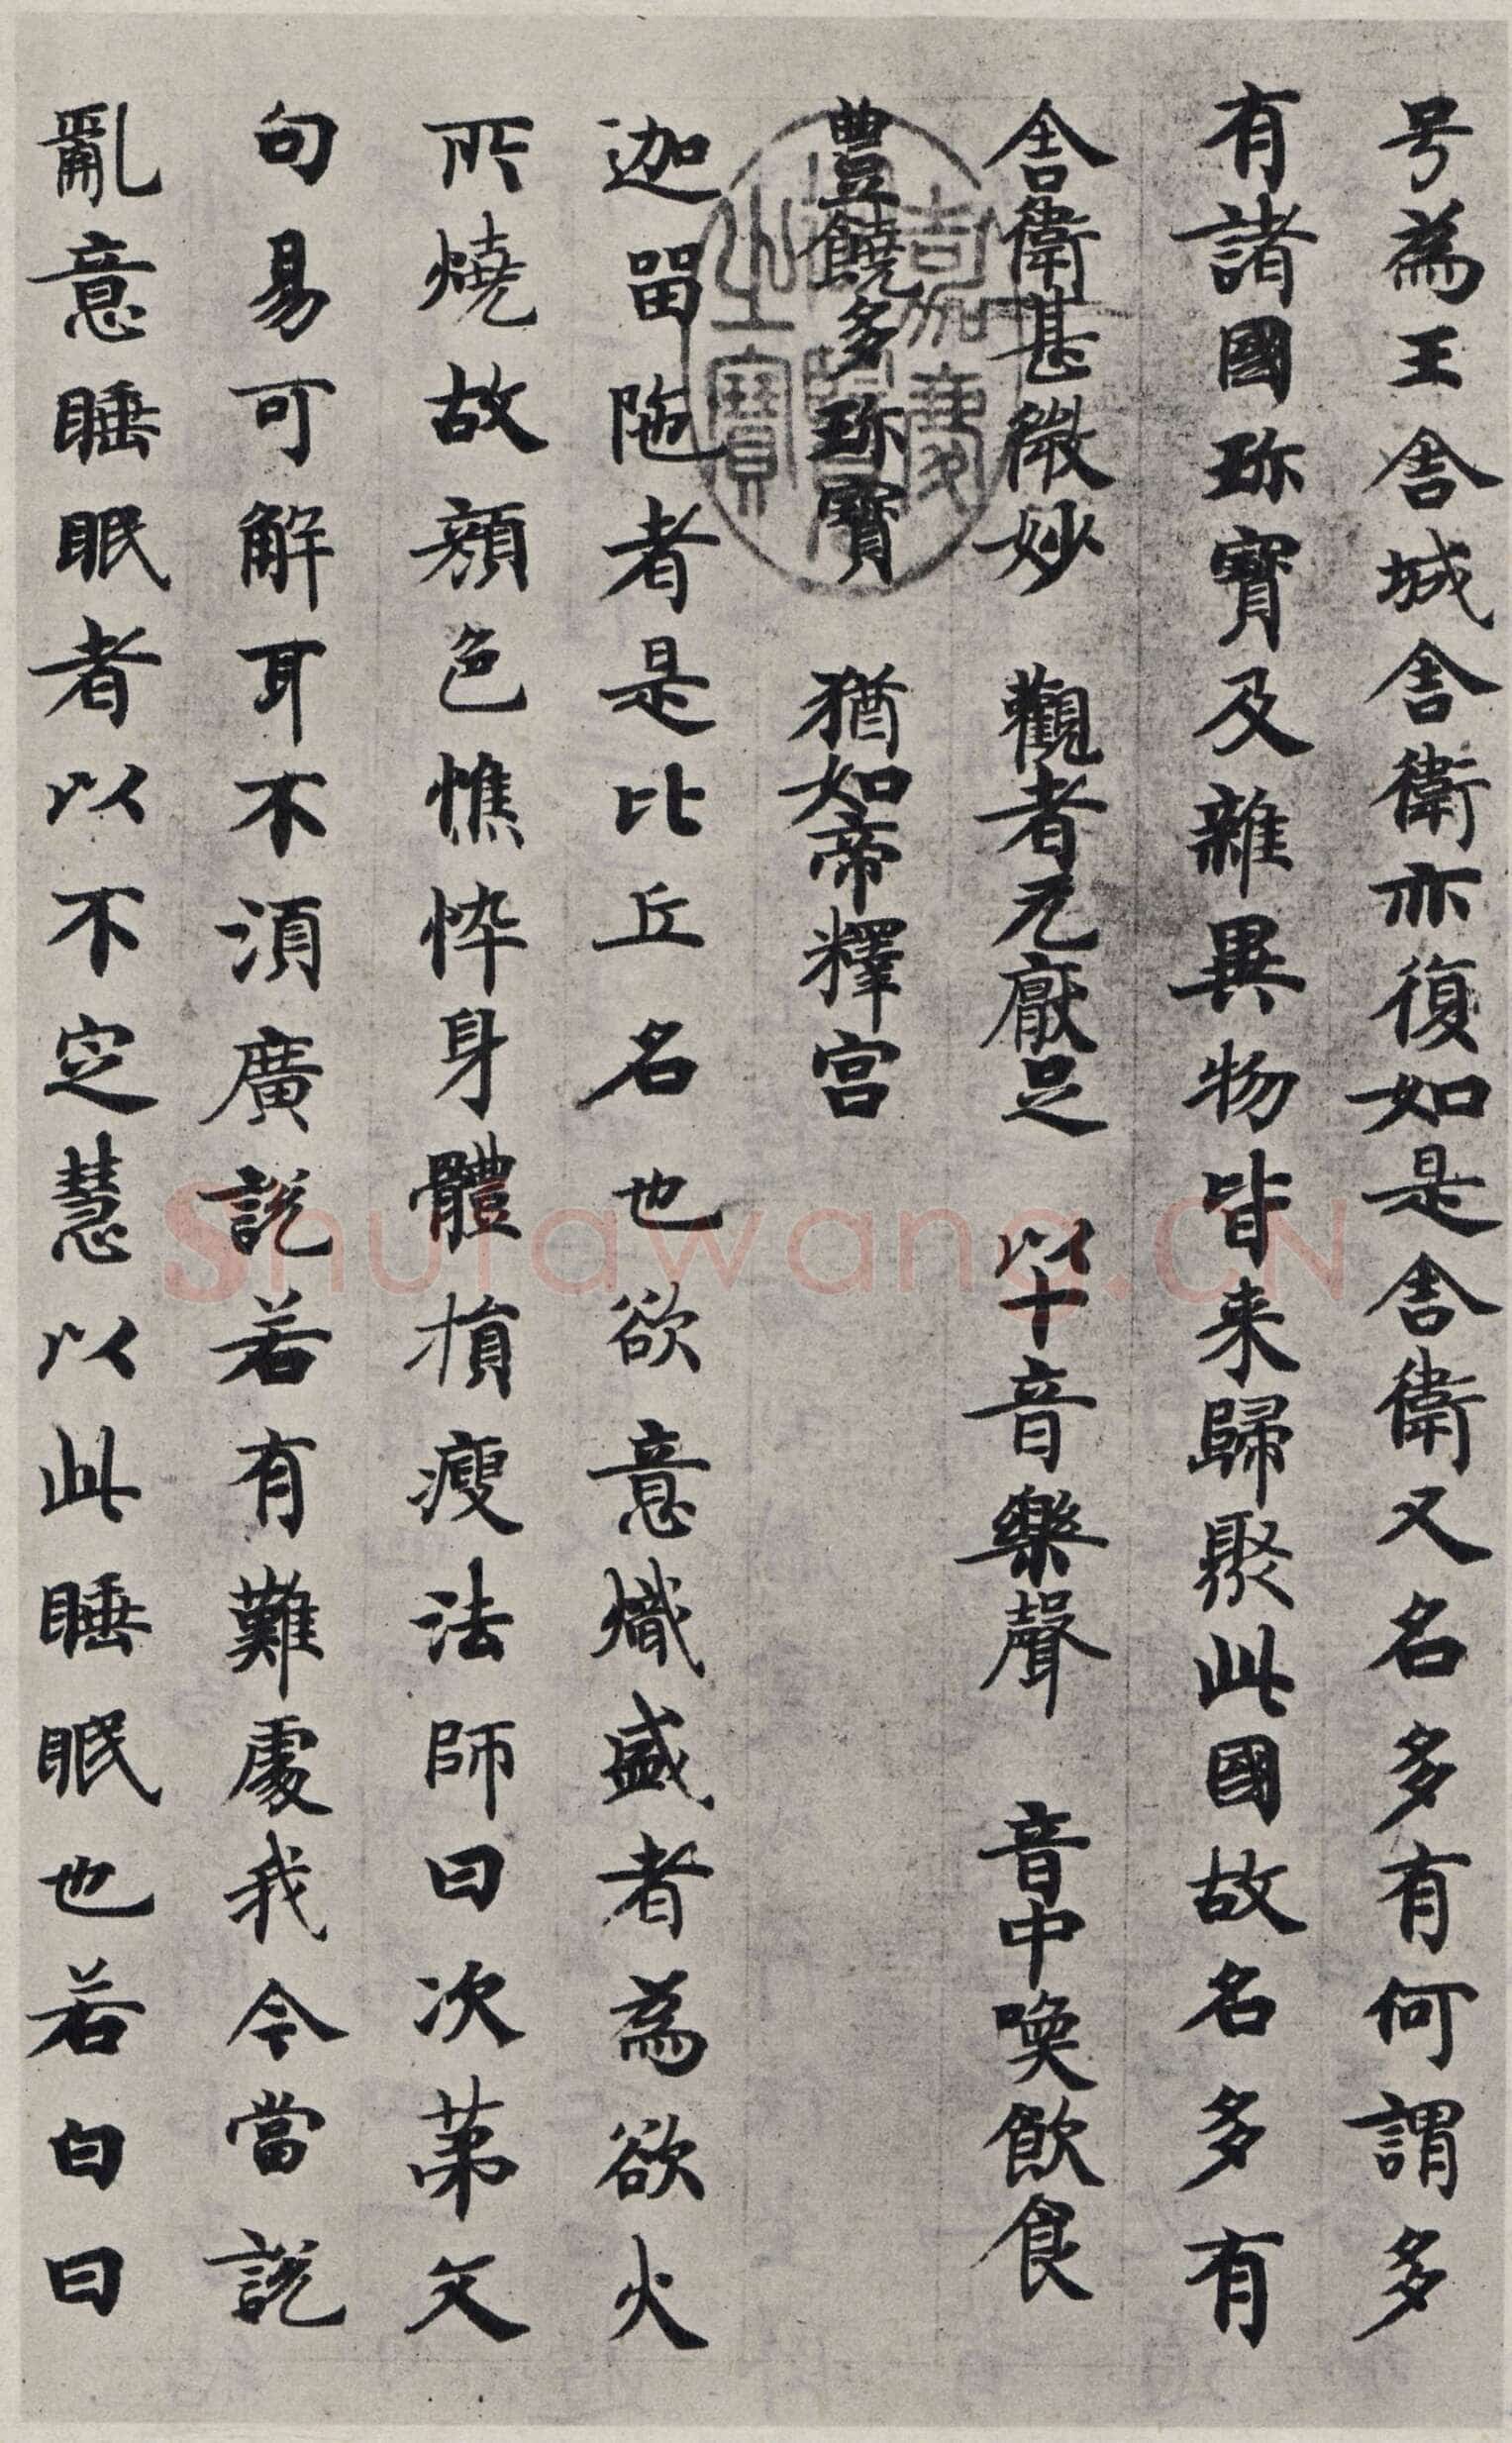 号為王舎城舎衛亦復如是舎衛又名多有何謂多
有諸國珎寶及雜異物皆来歸聚此國故名多有
舎衛甚微妙 觀者无厭足 以十音樂聲 音中喚飲食
豐饒多珎寶 猶如帝釋宫
迦留陁者是比丘名也欲意熾盛者為欲火
所燒故顏色憔悴身體損瘦法師曰次苐文
句易可解耳不須廣説若有難處我今當説
亂意睡眠者以不定慧以此睡眠也若白曰
shufawang.CN